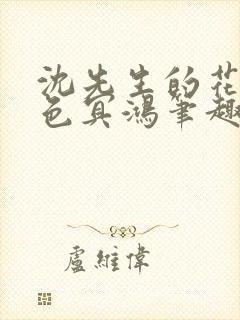 沈先生的花
色冥鴻筆趣
盧維偉